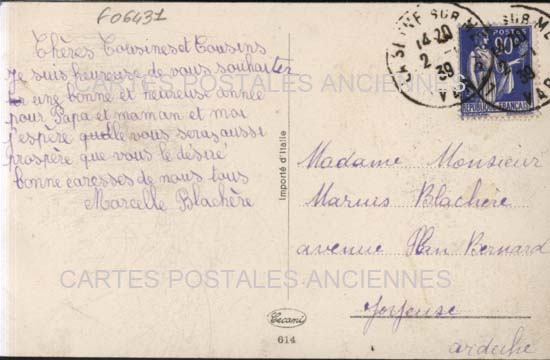 F06431
Chères Cousines et Cousins
Je suis heureuse de vous souhaiter
une bonne et heureuse année
pour Papa et maman et moi
j'espère qu'elle vous sera aussi
prospère que vous le désiré
bonne caresses de nous tous
Marcelle Blachère
Importé d'Italie
LA SEYNE SUR MER
14-20
2 - 1
39
VAR
POSTES
90c
REPUBLIQUE FRANÇAISE
Madame Monsieur
Marius Blachère
avenue Plan Bernard
Joyeuse
ardèche
CARTES POSTALES ANCIENNES
CARTES POSTALES ANCIENNES
Cecami
614